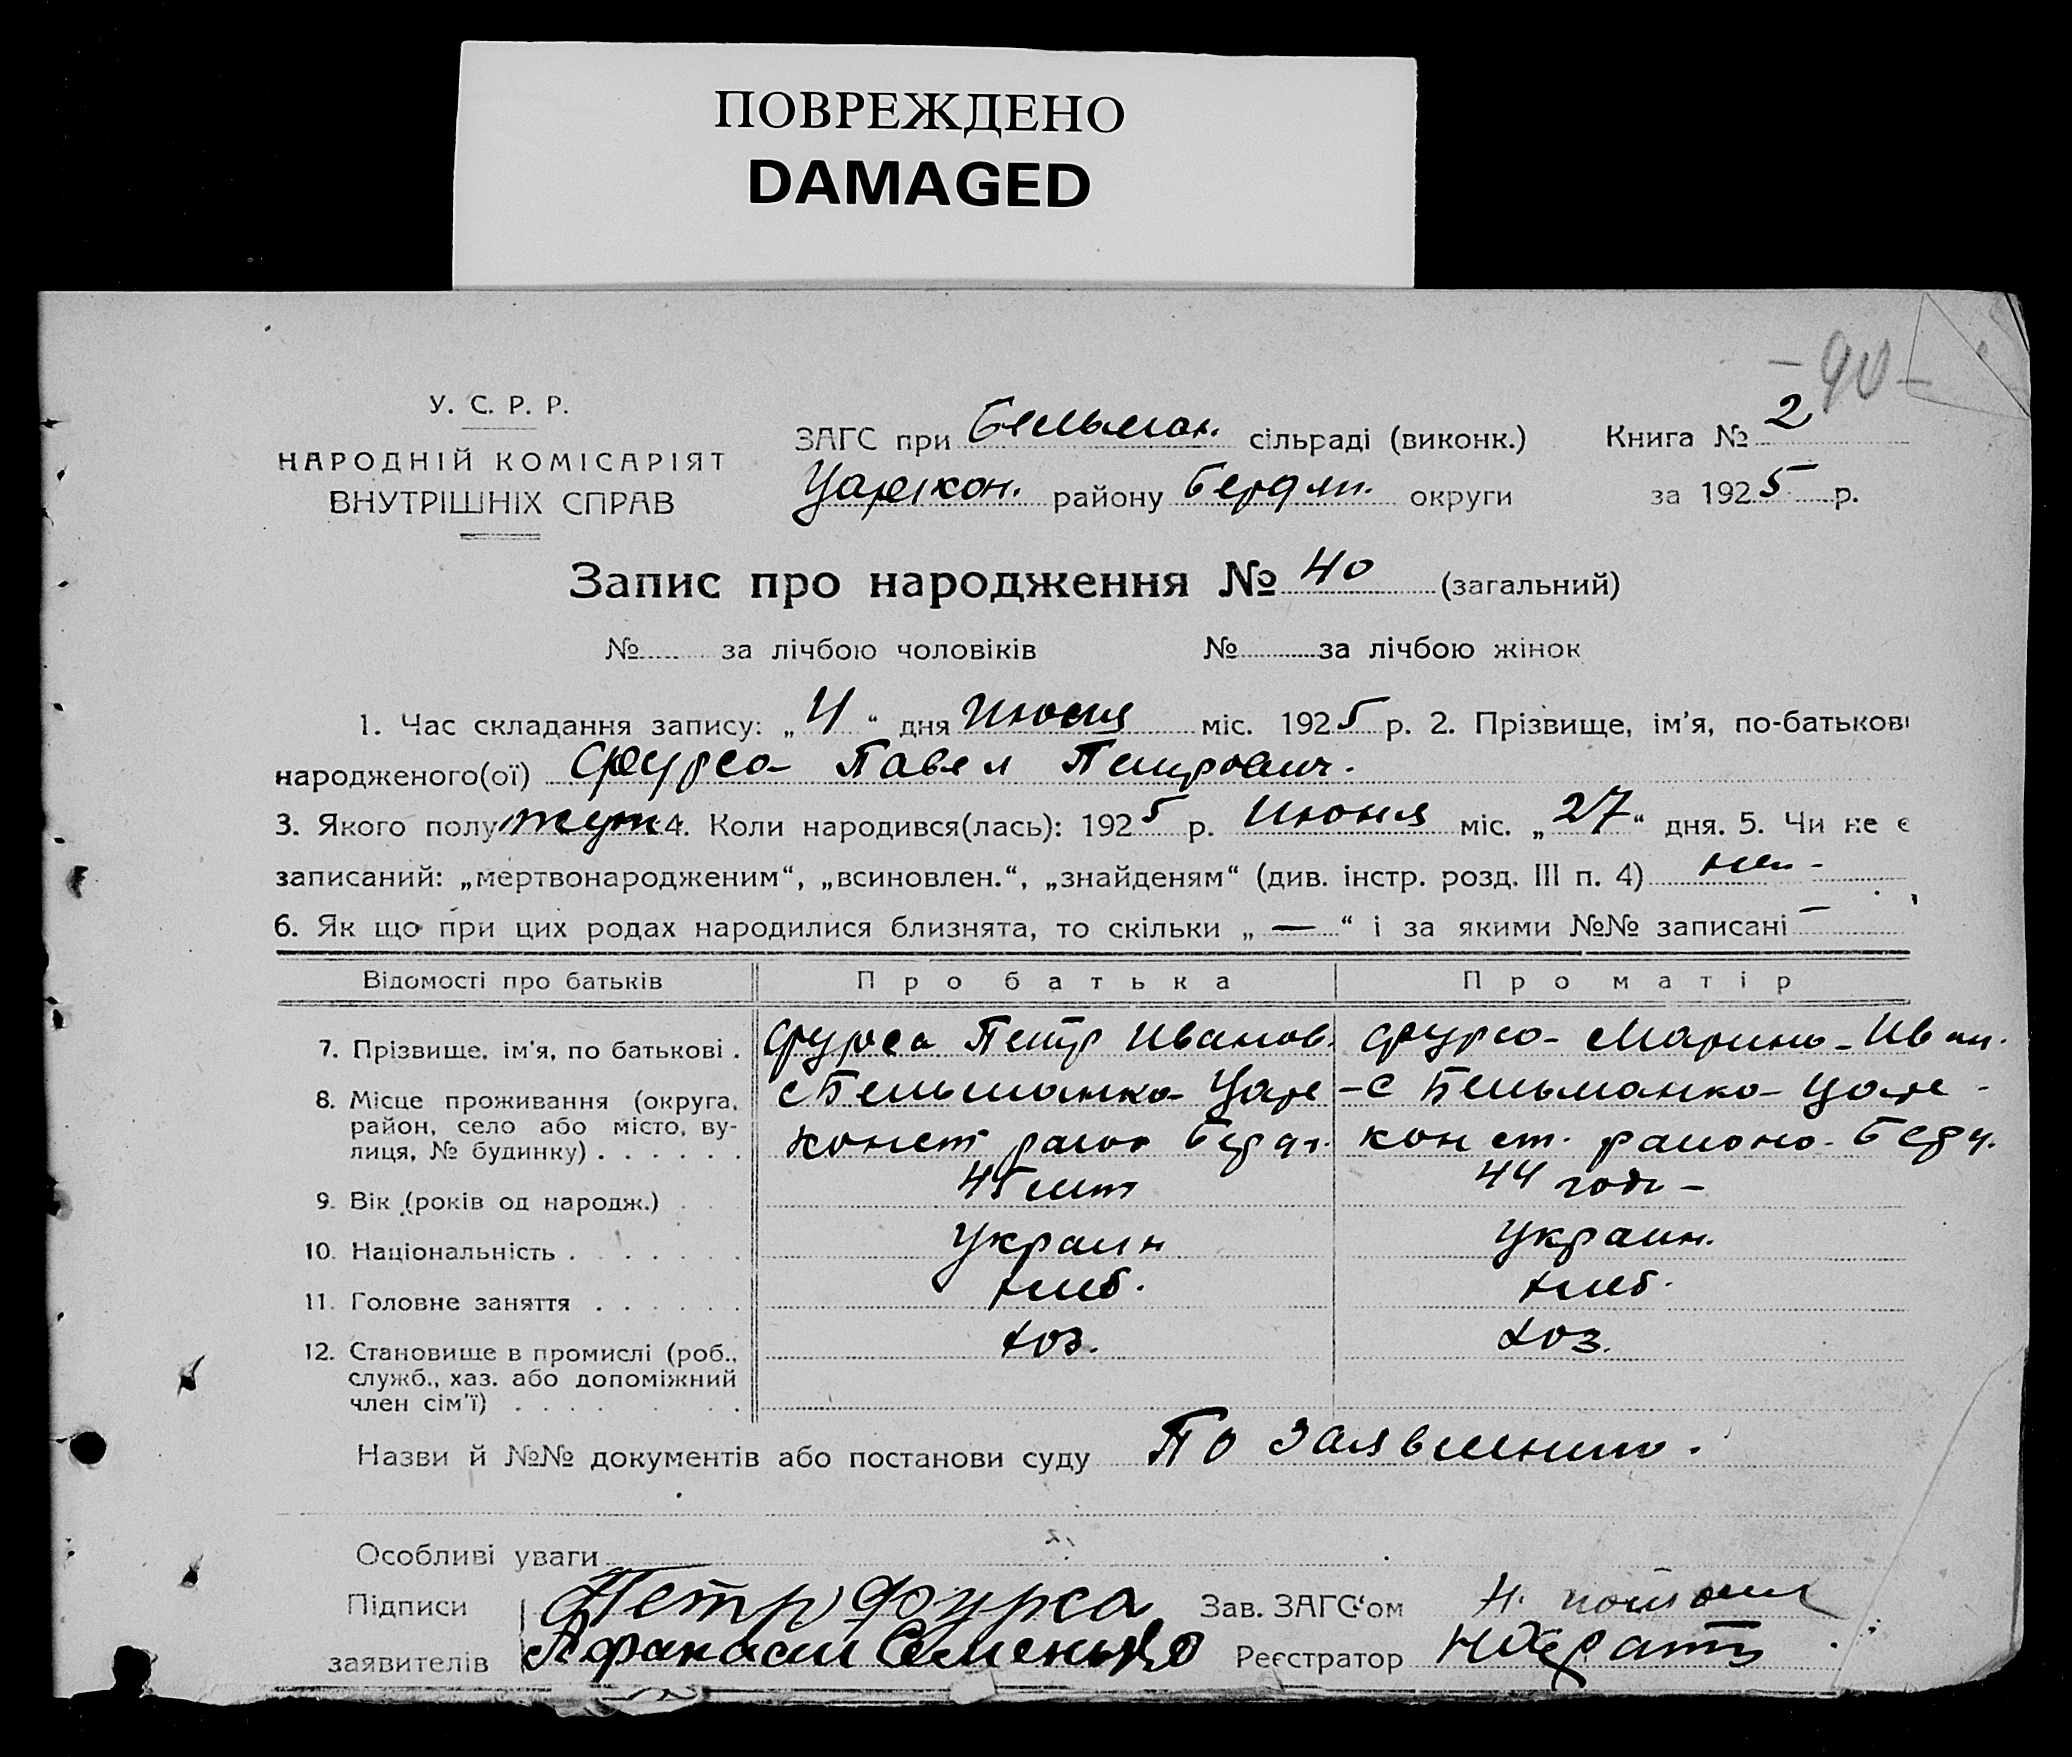 ПОВРЕЖДЕНО
DAMAGED
– 90 –
У. С. Р. Р.
НАРОДНІЙ КОМІСАРІЯТ
ВНУТРІШНІХ СПРАВ
ЗАГС при Бельман. сільраді (виконк.) Книга № 2
Царекон. району Бердян. округи за 1925 р.
Запис про народження № 40 (загальний)
№ за лічбою чоловіків № за лічбою жінок
1. Час складання запису: „ “ дня міс. 1925 р. 2. Прізвище, ім'я, по-батькові
народженого(ої) Фурса Павел Петрович.
3. Якого полу муж 4. Коли народився(лась): 1925 р. Июня міс. „27“ дня. 5. Чи не є
записаний: „мертвонародженим“, „всиновлен.“, „знайденям“ (див. інстр. розд. III п. 4)
6. Як що при цих родах народилися близнята, то скільки „ — “ і за якими №№ записані —
Відомості про батьків Про батька Про матір
7. Прізвище, ім'я, по батькові . Фурса Петр Иванов. Фурса Марина Иван.
8. Місце проживання (округа, с Бельманка Царе – с Бельманка Царе -
район, село або місто, ву-
лиця, № будинку) . . . . . . конст район Бердян. конст. района Бердян.
9. Вік (років од народж.) 45 лет 44 года –
10. Національність . . . . . . . Украин Украин.
11. Головне заняття . . . . . . хлеб. хлеб.
12. Становище в промислі (роб., хоз. хоз.
служб., хаз. або допоміжний
член сім'ї) . . . . . . .
Назви й №№ документів або постанови суду По заявлению.
Особливі уваги
Підписи Петр Фурса Зав. ЗАГС'ом
заявителів Афанасий Реєстратор